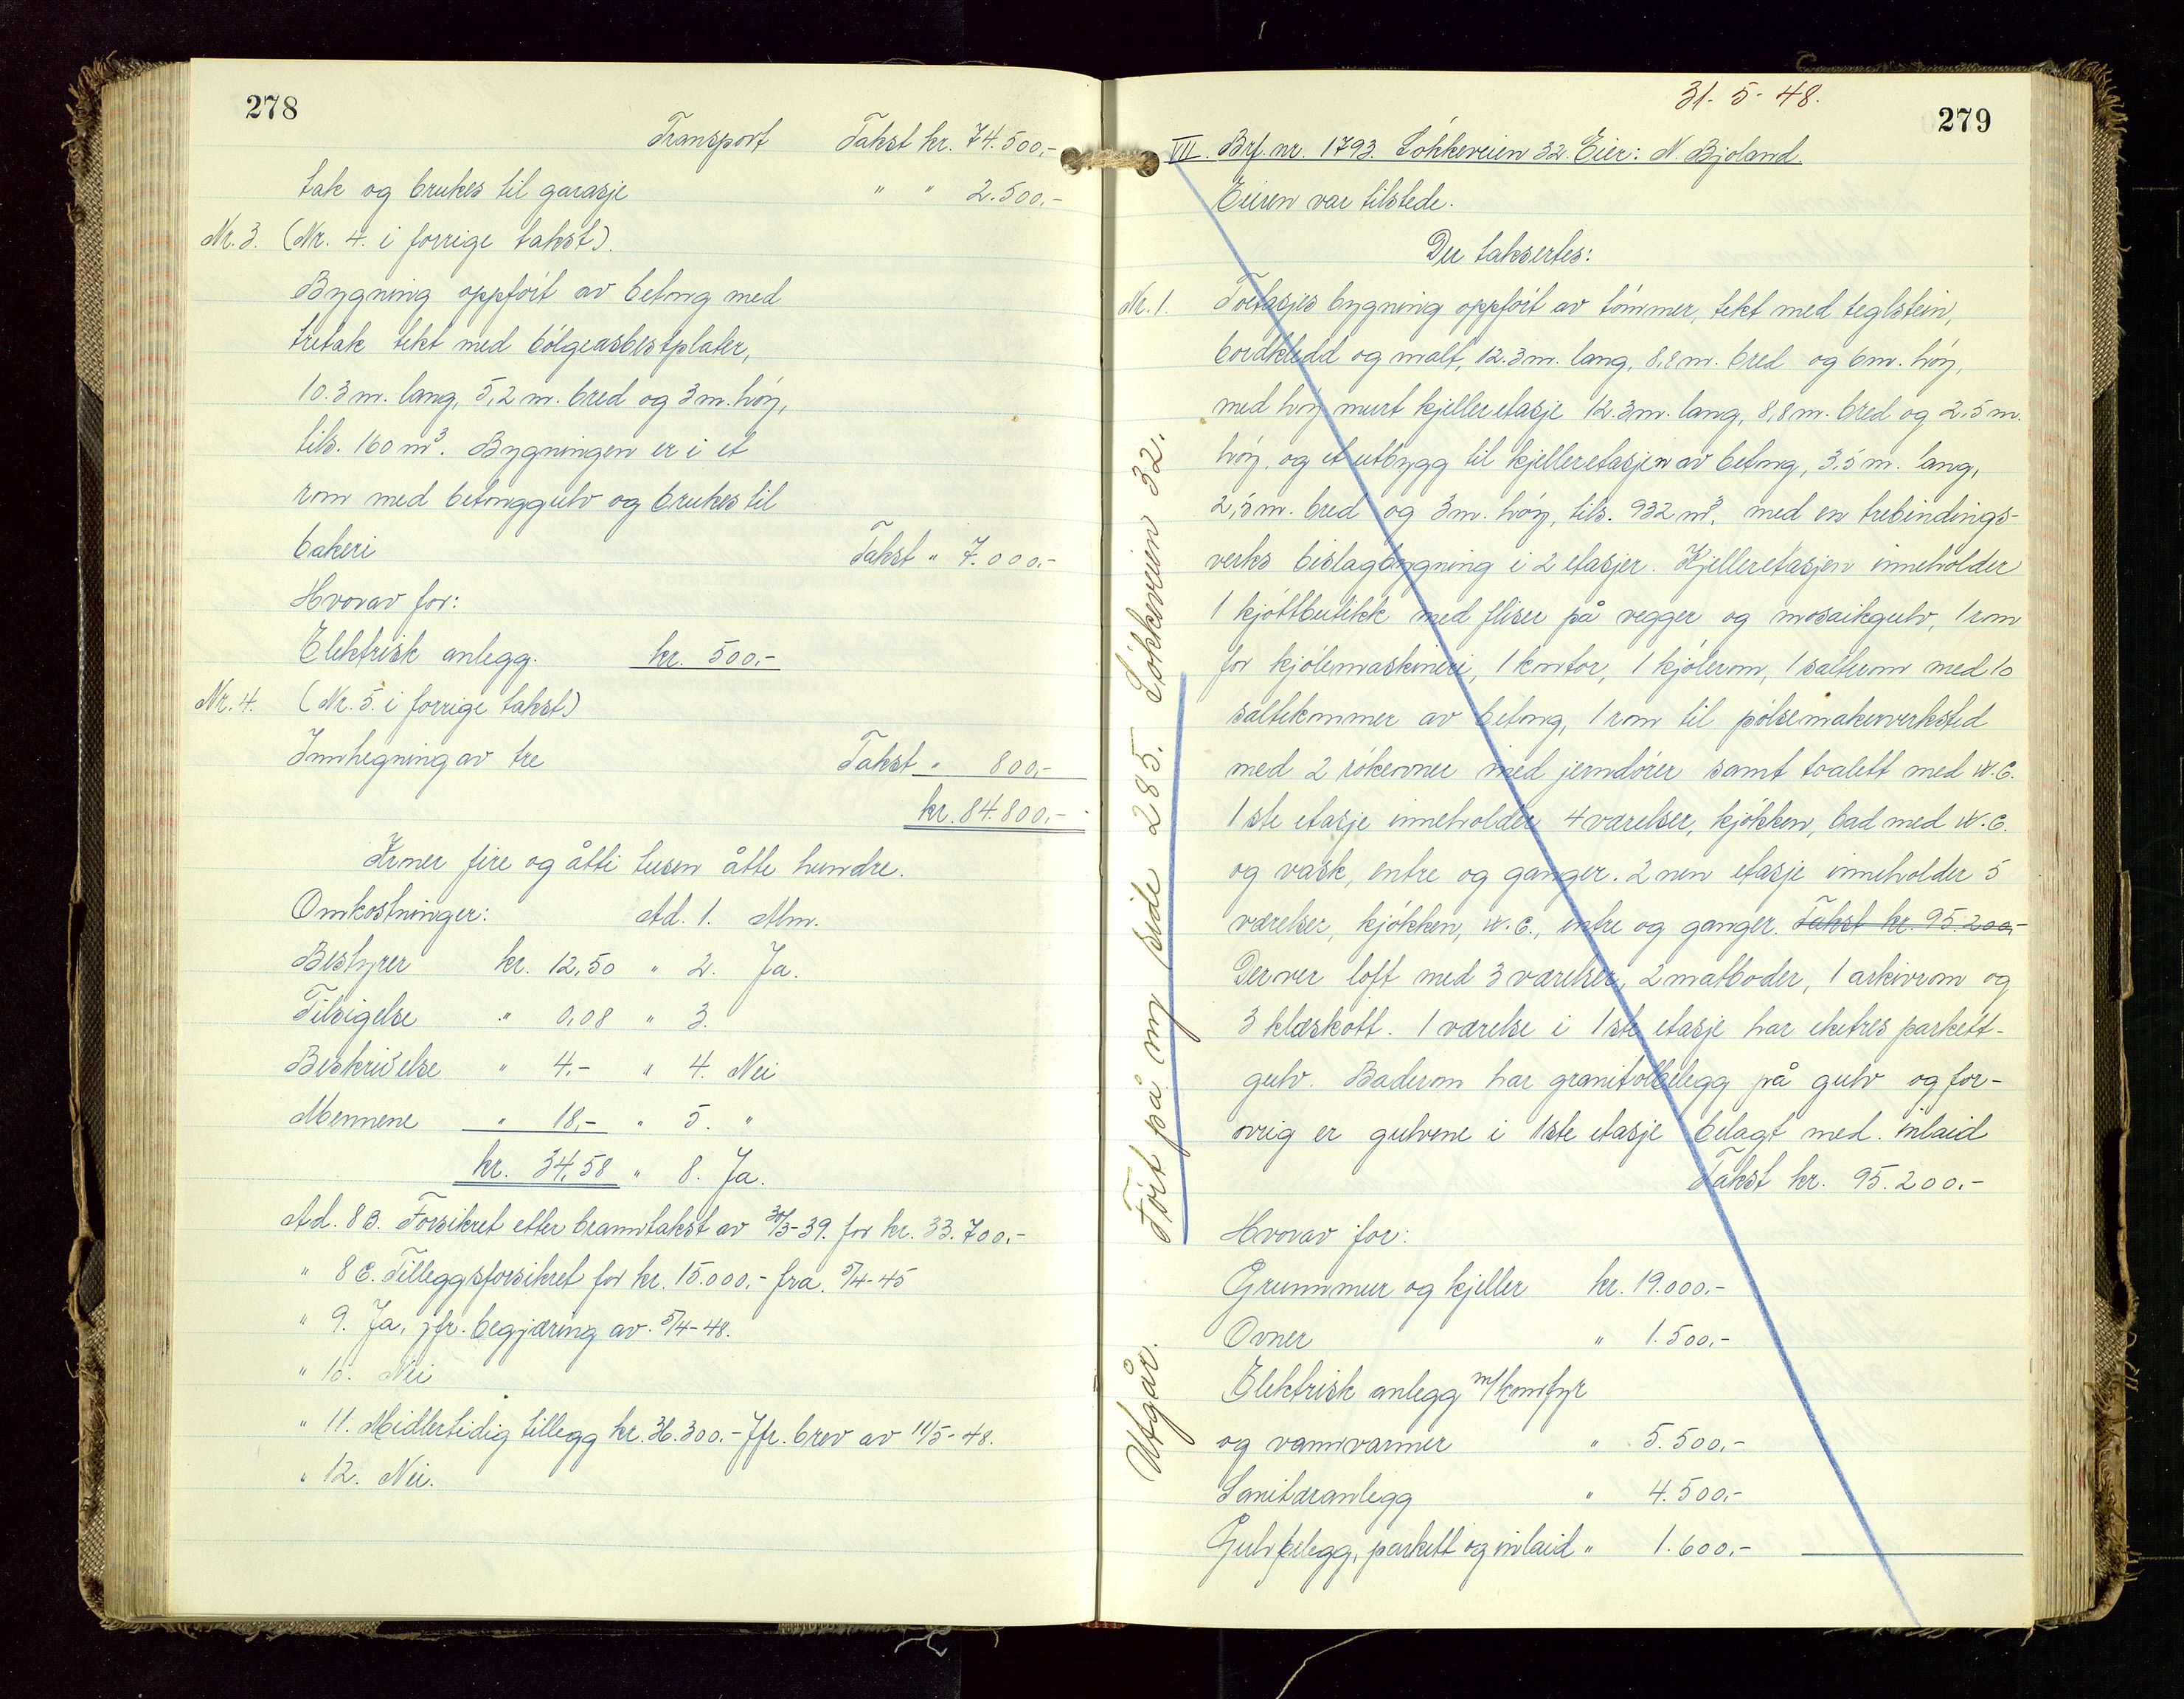 278
Transport Takst kr. 74.500,-
tak og brukes til garasje " " 2.500.-
Nr. 3. (Nr. 4. i forrige takst).
Bygning oppfört av betong med
tretak tekt med bölgeasbestplater,
10.3 m. lang, 5,2 m. bred og 3 m. höy,
tils. 160 m³. Bygningen er i et
rom med betonggulv og brukes til
bakeri Takst " 7.000.-
Hvorav for:
Elektrisk anlegg. kr. 500.-
Nr. 4. (Nr. 5. i forrige takst)
Innhegning av tre Takst " 800,-
kr. 84.800,-
Kroner fire og åtti tusen åtte hundre.
Omkostninger: Ad. 1. Alm.
Bestyrer kr. 12,50 " 2. Ja.
Tilsigelse " 0,08 " 3.
Beskrivelse " 4.- " 4. Nei
Mennene " 18,- " 5. "
kr. 34,58 " 8. Ja.
Ad. 8 B. Forsikret etter branntakst av 30/3-39. for kr. 33.700.-
" 8 C. Tilleggsforsikret for kr. 15.000.- fra. 5/4-45
" 9. Ja, jfr. begjæring av. 5/4-48.
" 10. Nei
" 11. Midlertidig tillegg kr. 36.300.- Jfr. brev av 11/5-48.
" 12. Nei.
31. 5. 48.
279
VII. Brf. nr. 1793. Lökkeveien 32. Eier: N. Bjoland.
Eieren var tilstede.
Der taksertes:
Nr. 1. Toetasjes bygning oppfört av tömmer, tekt med teglstein,
bordkledd og malt, 12.3 m. lang, 8,8 m. bred og 6 m. höy,
med höy murt kjelleretasje 12.3 m. lang, 8,8 m. bred og 2,5 m.
höy, og et utbygg til kjelleretasjen av betong, 3,5 m. lang,
2,5 m. bred og 3 m. höy, tils. 932 m³, med en trebindings-
verks bislagbygning i 2 etasjer. Kjelleretasjen inneholder
1 kjöttbutikk med fliser på vegger og mosaikgulv, 1 rom
for kjölemaskineri, 1 kontor, 1 kjölerom, 1 salterom med 10
saltekommer av betong, 1 rom til pölsemakerverksted
med 2 rökeovner med jerndörer samt toalett med W.C.
1ste etasje inneholder 4 værelser, kjökken, bad med W.C.
og vask, entre og ganger. 2 nen etasje inneholder 5
værelser, kjökken, W.C., entre og ganger. Takst kr. 95.200,-
Derover loft med 3 værelser, 2 matboder, 1 arkivrom og
3 klæskott. 1 værelse i 1ste etasje har eketres parkett-
gulv. Baderom har granitolbelegg på gulv og for-
övrig er gulvene i 1ste etasje belagt med. inlaid
Takst kr. 95.200.-
Hvorav for:
Grunnmur og kjeller kr. 19.000.-
Ovner " 1.500,-
Elektrisk anlegg m/komfyr
og vannvarmer " 5.500,-
Sanitæranlegg " 4.500,-
Gulvbelegg, parkett og inlaid " 1.600,-
Utgår. Fört på ny side 285. Lökkeveien 32.